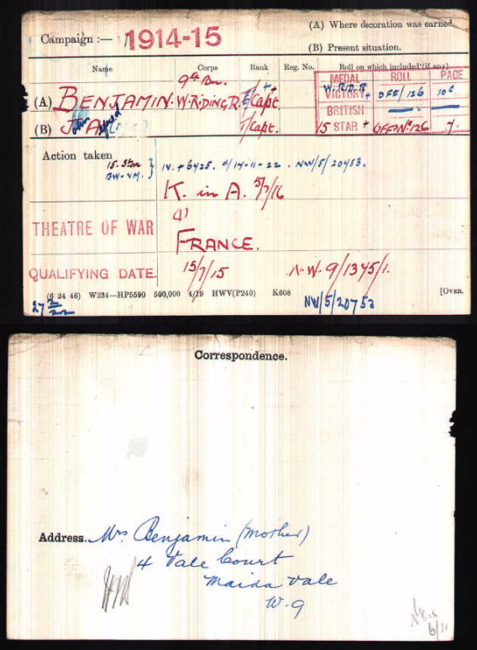 (A) Where decoration was earned.
Campaign :— 1914-15
(B) Present situation.
Name Corps Rank Reg. No. Roll on which included (if any).
MEDAL ROLL PAGE
9th Bn.
(A) BENJAMIN. W. Riding. R. T/Capt.
VICTORY OFF/126 106
BRITISH
(B) J. A. T/Capt.
15 STAR OFF 126 7.
Action taken
15. Star
BW. VM. } IV. + 6425. 14-11-22. NW/5/20453.
K. in A. 5/7/16
(1)
THEATRE OF WAR FRANCE.
QUALIFYING DATE. 15/7/15 N.W. 9/1345/1.
(6 34 46) W234—HP5590 500,000 4/19 HWV(P240) K608 [OVER.
NW/5/20753
Correspondence.
Address. Mrs Benjamin (mother)
4 Vale Court
Maida Vale
W. 9